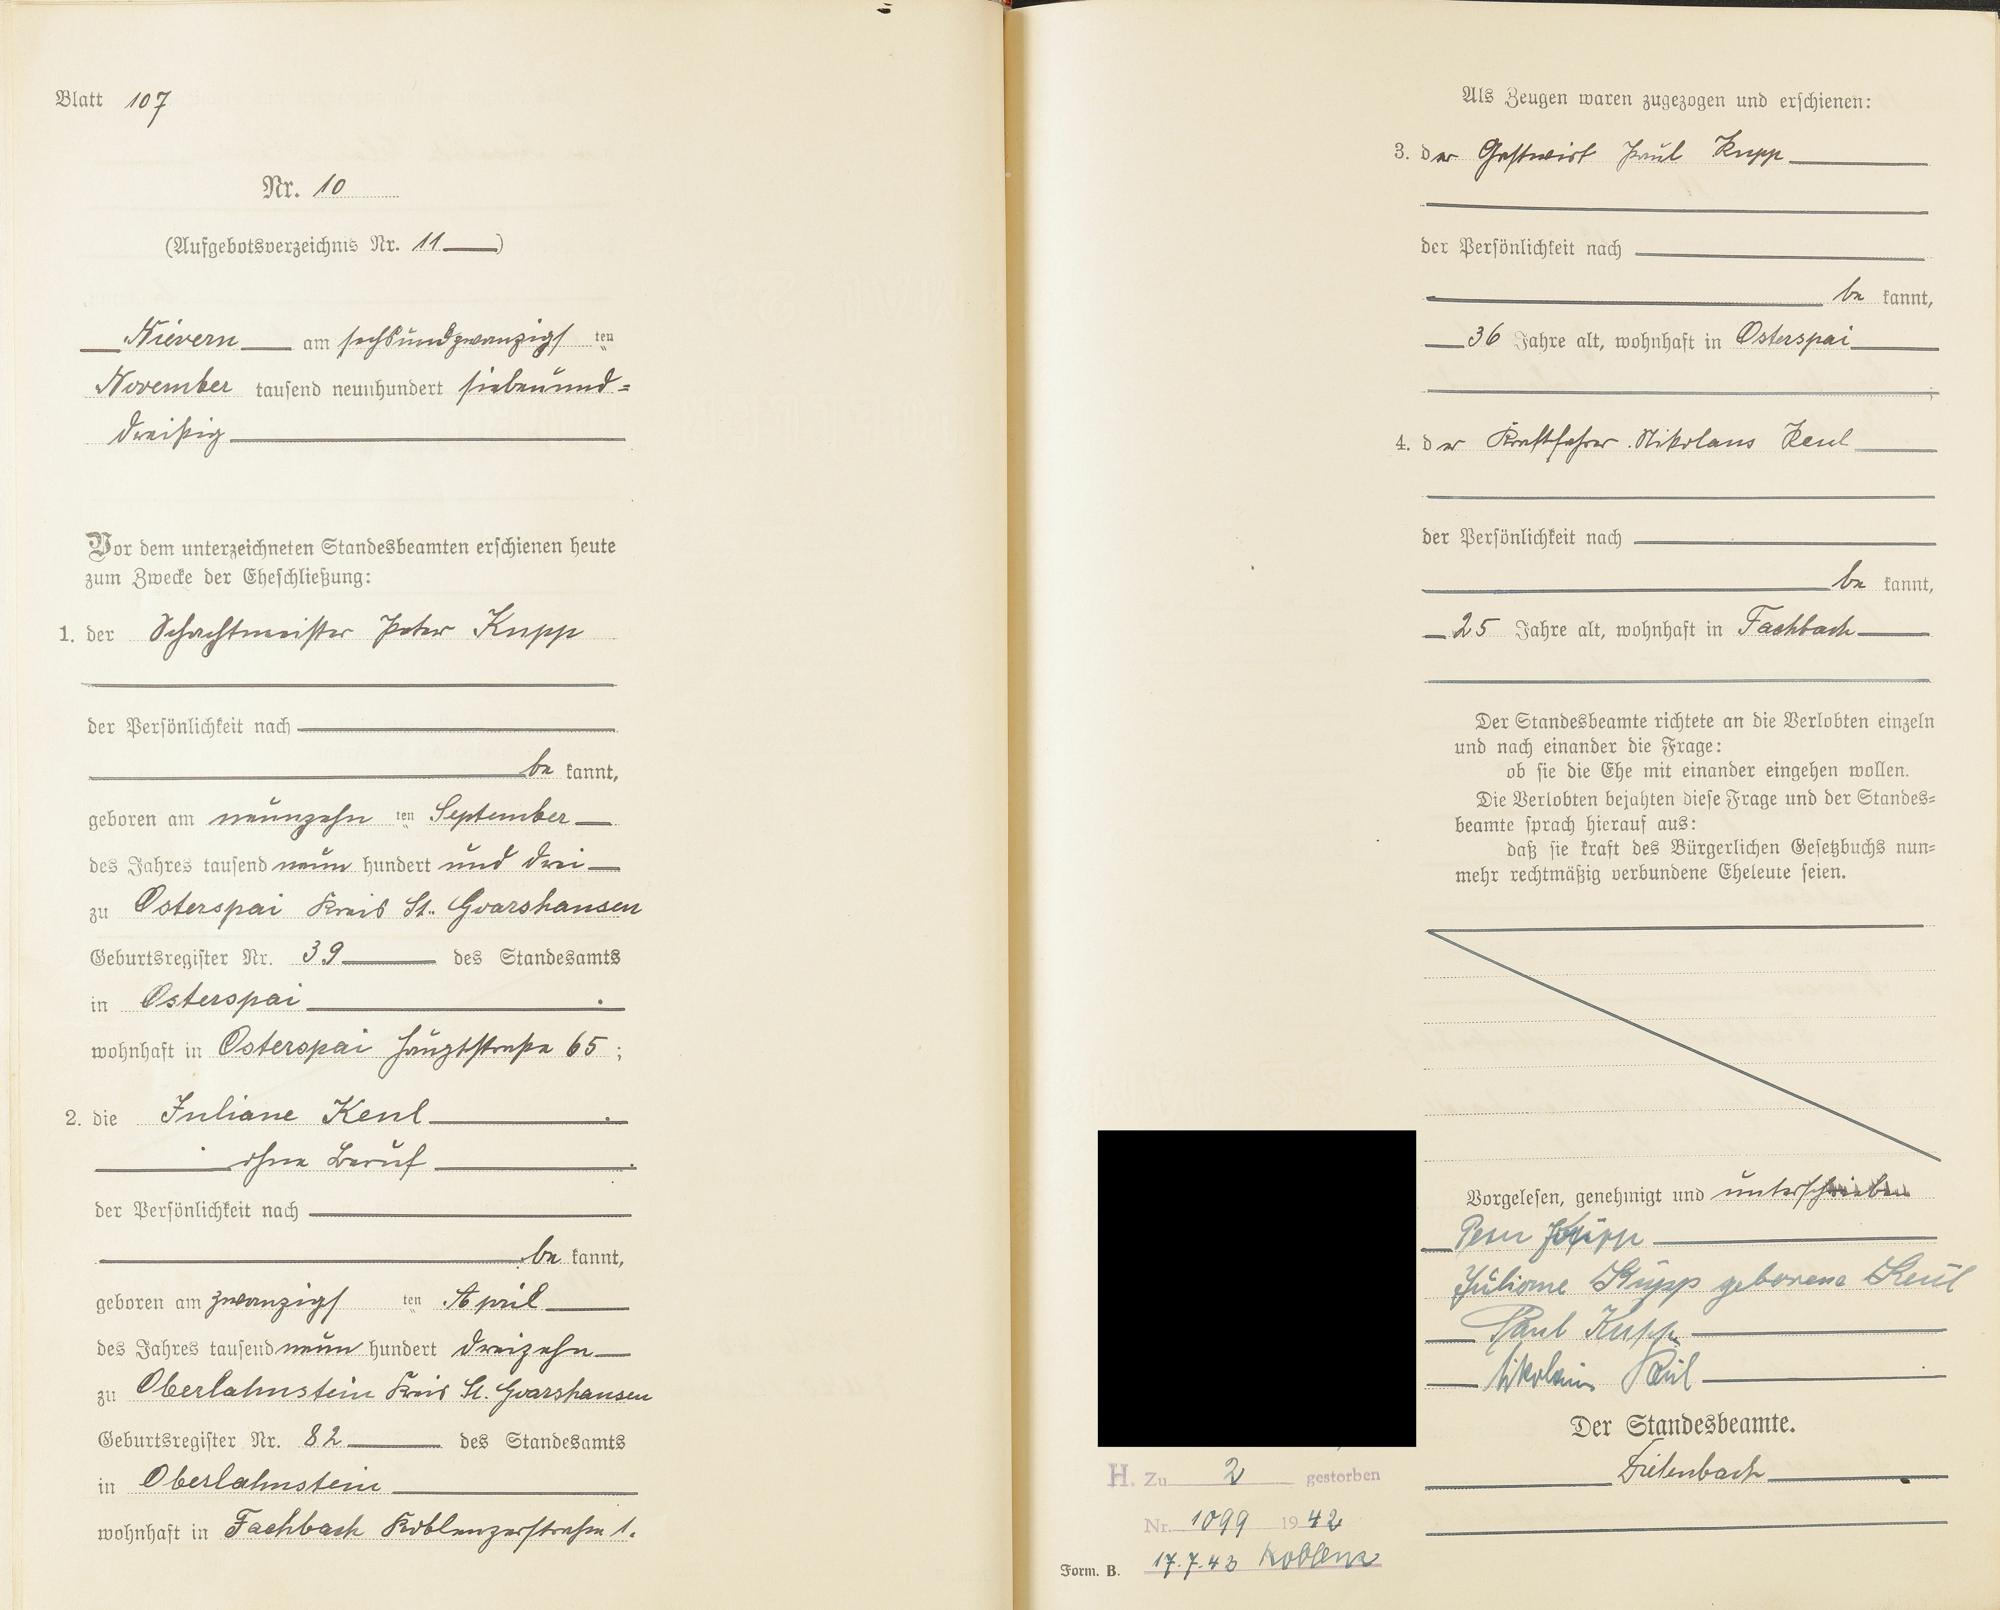 Blatt 107
Nr. 10
(Aufgebotsverzeichnis Nr. 11)
Nievern am sechsundzwanzigs ten
November tausend neunhundert siebenund=
dreißig
Vor dem unterzeichneten Standesbeamten erschienen heute
zum Zwecke der Eheschließung:
1. der Schachtmeister Peter Kupp
der Persönlichkeit nach
be kannt,
geboren am neunzehn ten September
des Jahres tausend neun hundert und drei
zu Osterspai Kreis St. Goarshausen
Geburtsregister Nr. 39 des Standesamts
in Osterspai
wohnhaft in Osterspai Hauptstraße 65 ;
2. die Juliane Keul
ohne Beruf
der Persönlichkeit nach
be kannt,
geboren am zwanzigs ten April
des Jahres tausend neun hundert dreizehn
zu Oberlahnstein Kreis St. Goarshausen
Geburtsregister Nr. 82 des Standesamts
in Oberlahnstein
wohnhaft in Fachbach Koblenzerstraße 1.
Als Zeugen waren zugezogen und erschienen:
3. der Gastwirt Paul Kupp
der Persönlichkeit nach
be kannt,
36 Jahre alt, wohnhaft in Osterspai
;
4. der Kraftfahrer Nikolaus Keul
der Persönlichkeit nach
be kannt,
25 Jahre alt, wohnhaft in Fachbach
Der Standesbeamte richtete an die Verlobten einzeln
und nach einander die Frage:
ob sie die Ehe mit einander eingehen wollen.
Die Verlobten bejahten diese Frage und der Standes=
beamte sprach hierauf aus:
daß sie kraft des Bürgerlichen Gesetzbuchs nun=
mehr rechtmäßig verbundene Eheleute seien.
Vorgelesen, genehmigt und unterschrieben
Peter Kupp
Juliane Kupp geborene Keul
Paul Kupp
Nikolaus Keul
Der Standesbeamte.
H. Zu 2 gestorben
Nr. 1099 1942
17.7.43 Koblenz
Form. B.